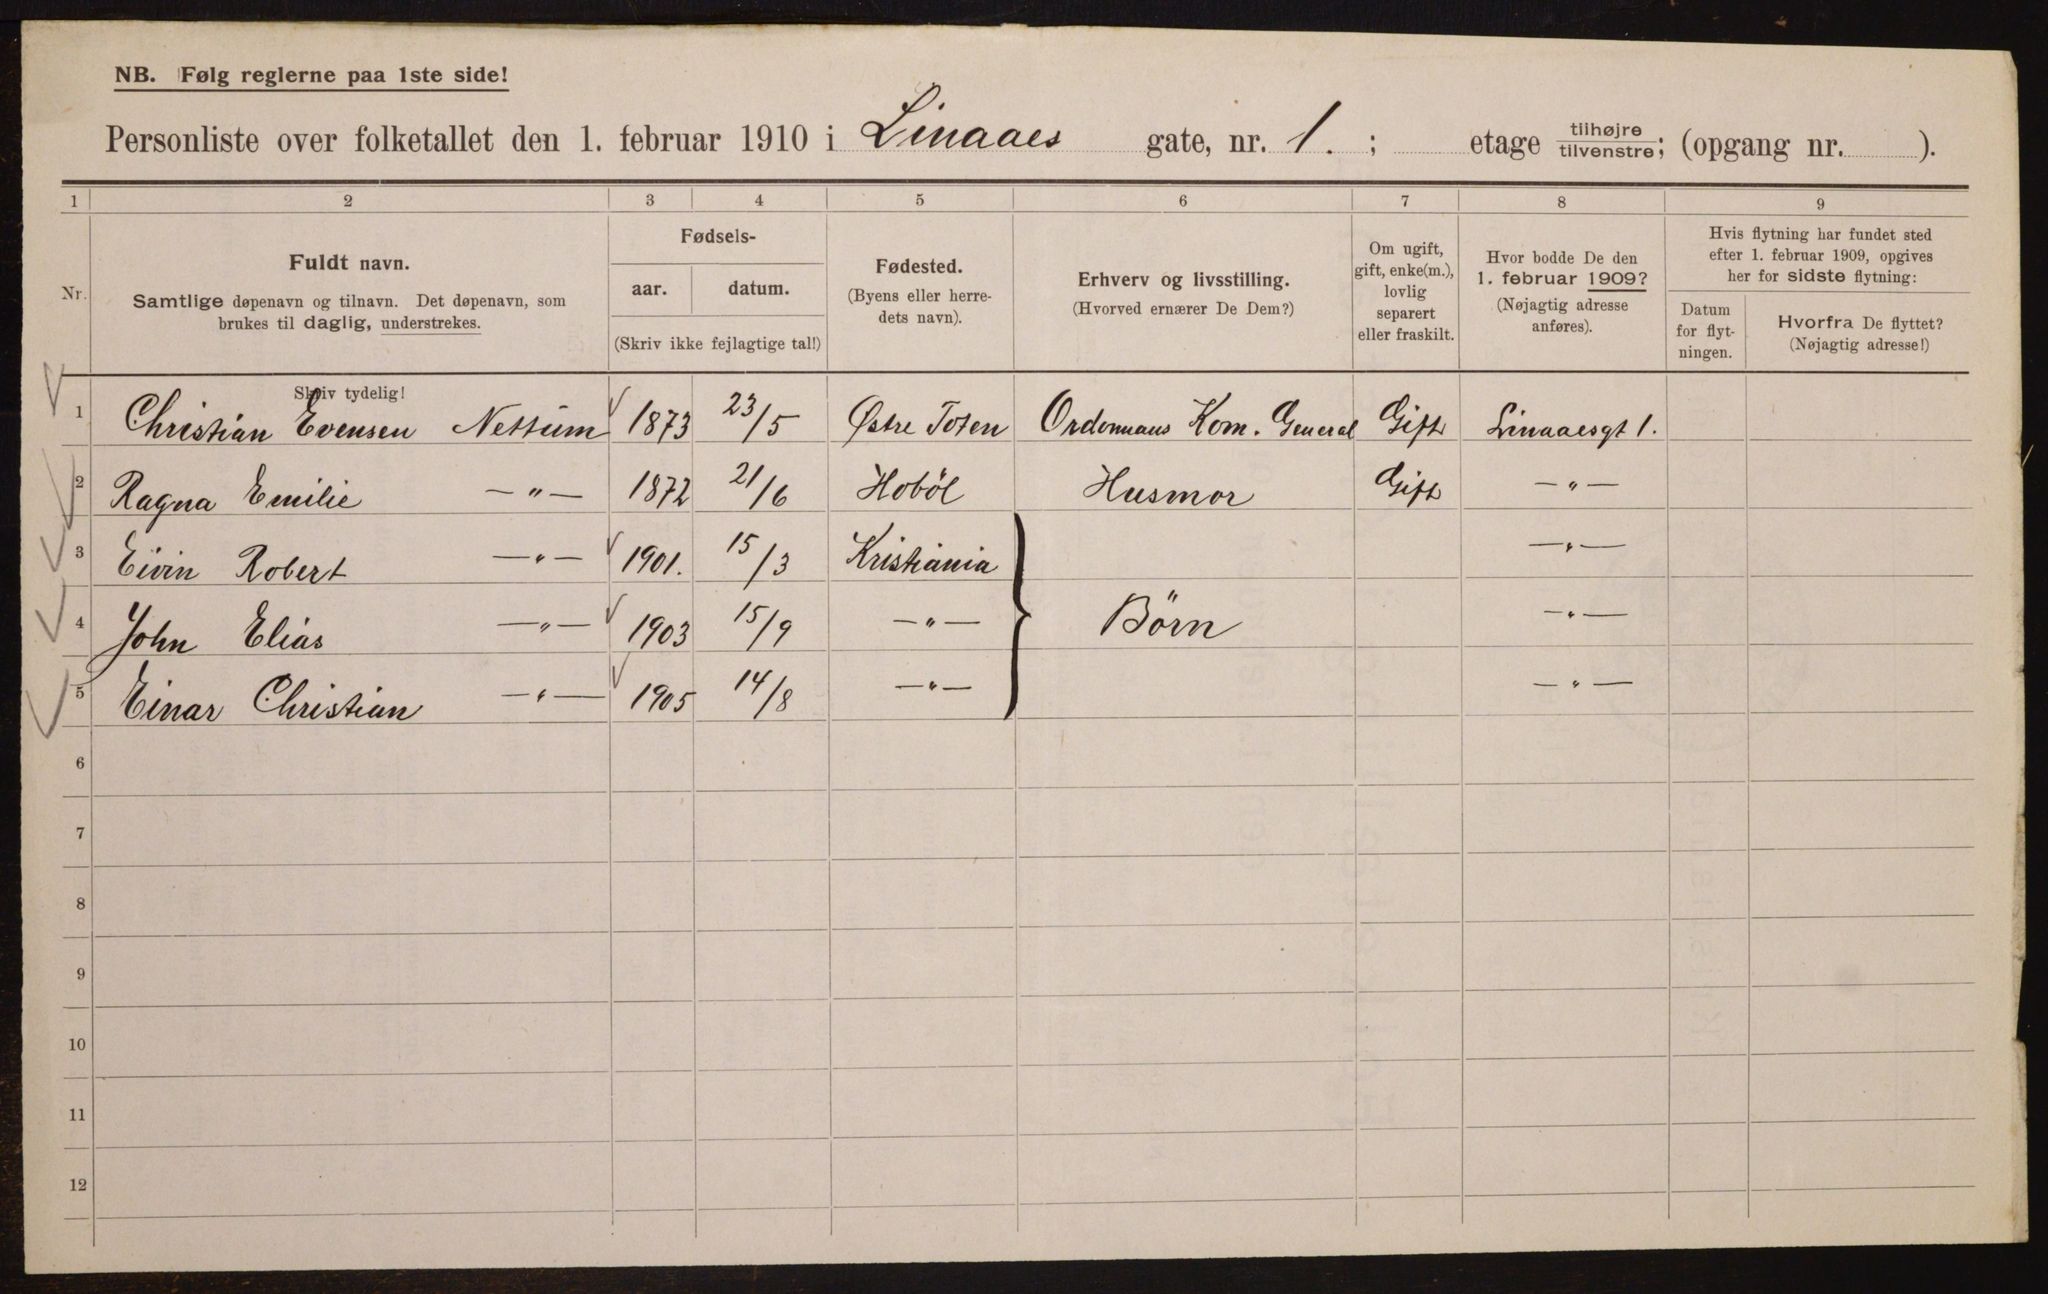 NB. Følg reglerne paa 1ste side!
Personliste over folketallet den 1. februar 1910 i Linaaes gate, nr. 1. ; etage tilhøjre tilvenstre; (opgang nr. ).
1 2 3 4 5 6 7 8 9
Nr.
Fuldt navn.
Samtlige døpenavn og tilnavn. Det døpenavn, som
brukes til daglig, understrekes.
Skriv tydelig!
Fødsels-
aar. datum.
(Skriv ikke fejlagtige tal!)
Fødested.
(Byens eller herre-
dets navn).
Erhverv og livsstilling.
(Hvorved ernærer De Dem?)
Om ugift,
gift, enke(m.),
lovlig
separert
eller fraskilt.
Hvor bodde De den
1. februar 1909?
(Nøjagtig adresse
anføres).
Hvis flytning har fundet sted
efter 1. februar 1909, opgives
her for sidste flytning:
Datum
for flyt-
ningen.
Hvorfra De flyttet?
(Nøjagtig adresse!)
1 Christian Evensen Nettum 1873 23/5 Østre Toten Ordonnans Kom. General Gift Linaaesgt 1.
2 Ragna Emilie —"— 1872 21/6 Hoböl Husmor Gift —"—
3 Eivin Robert —"— 1901. 15/3 Kristiania —"—
4 John Elias —"— 1903 15/9 —"— Börn —"—
5 Einar Christian —"— 1905 14/8 —"— —"—
6
7
8
9
10
11
12